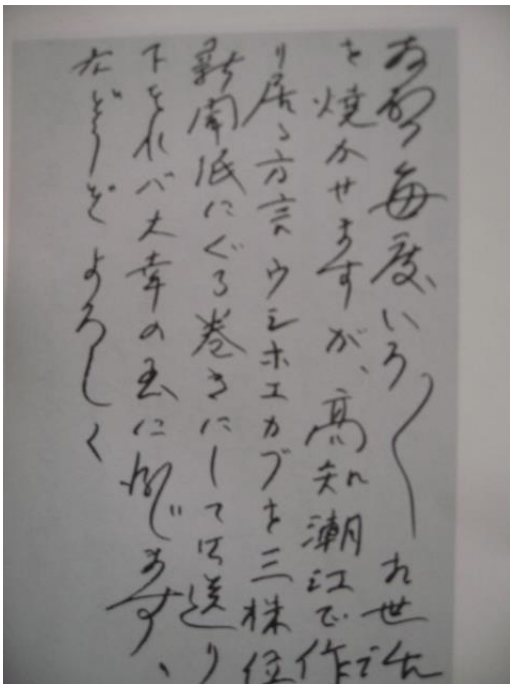 毎度いろ〱お世話
を焼かせますが、高知潮江で作
り居る方言ウシホエカブを三株位
新聞紙にぐる巻きにして御送り
下されバ大幸の至に存じます、
右どうぞよろしく